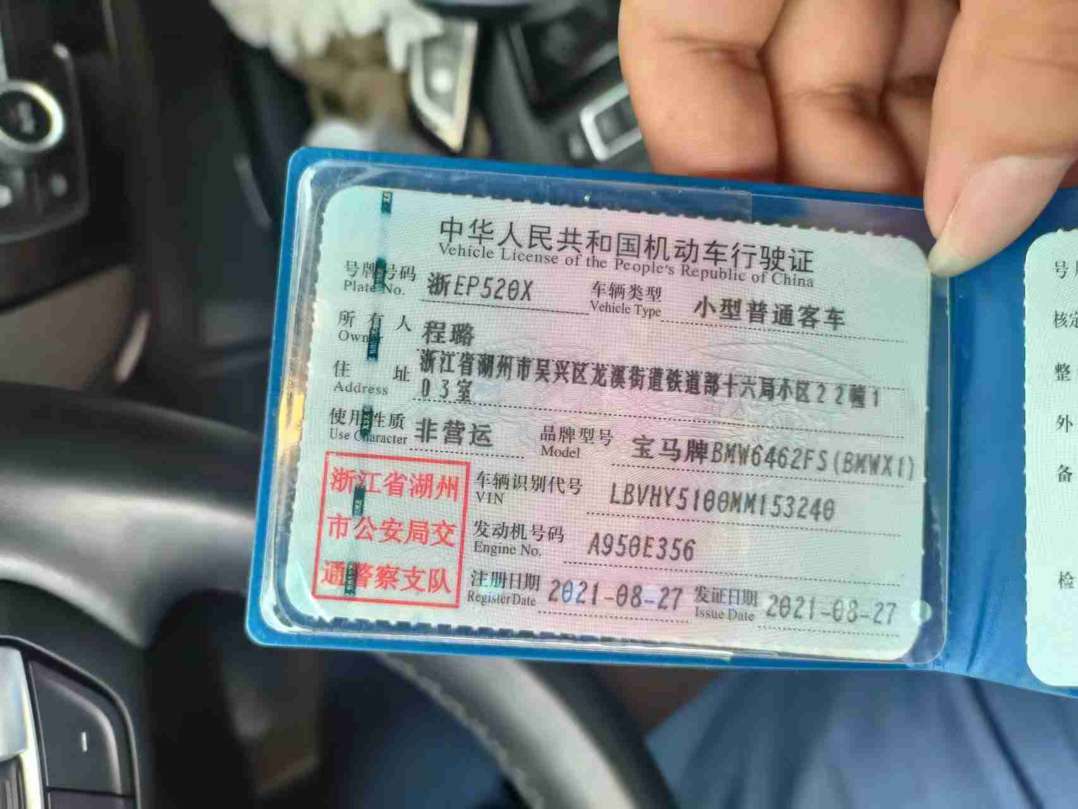 中华人民共和国机动车行驶证
Vehicle License of the People's Republic of China
号牌号码 Plate No. 浙EP520X 车辆类型 Vehicle Type 小型普通客车
所有人 Owner 程璐
住址 Address 浙江省湖州市吴兴区龙溪街道铁道部十六局小区22幢1
03室
使用性质 Use Character 非营运 品牌型号 Model 宝马牌BMW6462FS(BMWX1)
浙江省湖州
市公安局交
通警察支队
车辆识别代号 VIN LBVHY5100MM153240
发动机号码 Engine No. A950E356
注册日期 Register Date 2021-08-27 发证日期 Issue Date 2021-08-27
号
核定
整
外
备
检